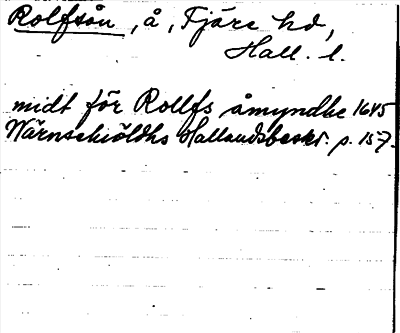 Rolfsån, å, Fjäre hd,
Hall. l.
midt för Rollfs åmyndhe 1645
Wärnschiöldhs Hallandsbeskr. p. 157.